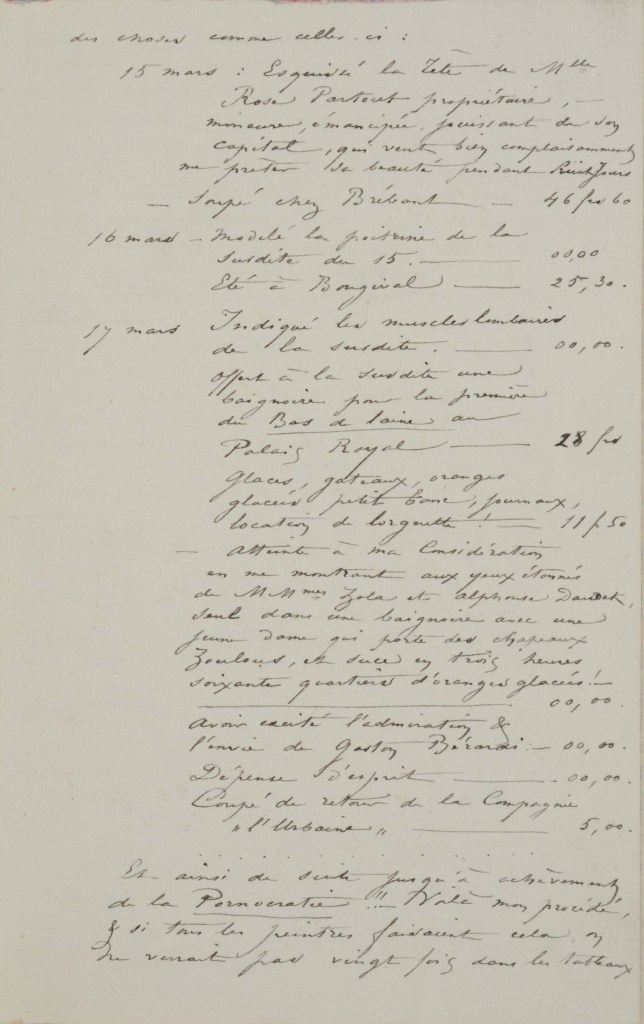 des choses comme celles-ci :
15 mars : Esquissé la Tête de Mlle
Rose Partout propriétaire, –
mineure, émancipée, jouissant de son
capital, qui veut bien complaisamment
me prêter sa beauté pendant huit jours
– Soupé chez Brébant – 46 frs 60
16 mars – Modelé la poitrine de la
susdite du 15. — 00,00
Eté à Bougival — 25,30.
17 mars Indiqué les muscles lombaires
de la susdite. — 00,00.
Offert à la susdite une
baignoire pour la première
du Bas de laine au
Palais Royal — 28 frs
Glaces, gateaux, oranges
glacées petit banc, journaux,
location de lorgnette ! — 11 f 50
– Atteinte à ma Considération
en me montrant aux yeux étonnés
de MMmes Zola et Alphonse Daudet,
seul dans une baignoire avec une
jeune dame qui porte des chapeaux
Zoulous, et suce en trois heures
soixante quartiers d'oranges glacés ! –
00,00.
Avoir excité l'admiration &
l'envie de Gaston Bérardi – 00,00.
Dépense d'esprit — 00,00.
Coupé de retour de la Compagnie
„ l'Urbaine „ — 5,00.
Et ainsi de suite jusqu'à achèvement
de la Pornocratie !!! Voilà mon procédé,
& si tous les peintres faisaient cela on
ne verrait pas vingt fois dans les tableaux